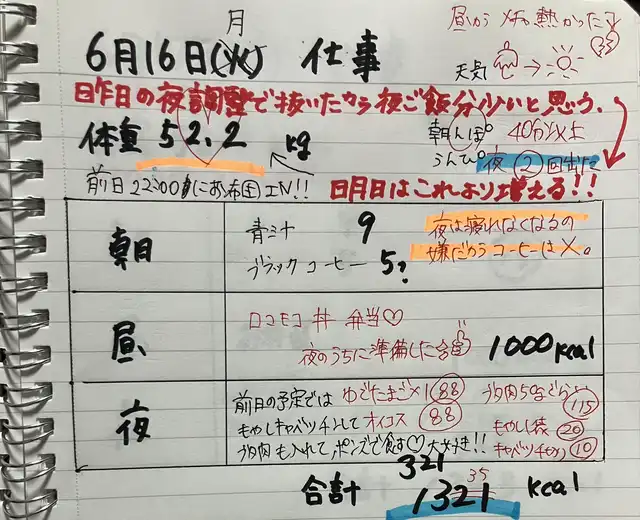 月
6月16日(火) 仕事
昼から メチャ熱かった
天気 →
昨日の夜調整で抜いたから夜ご飯分少ないと思う.
体重 52.2 kg
朝んぽ。40分以上
うんぴ。夜②回出た
前日22:00にお布団IN!!
明日はこれより増える!!
朝
青汁 9
ブラックコーヒー 5?
夜は寝れなくなるの
嫌だからコーヒーは×。
昼
ロコモコ丼 弁当♡
夜のうちに準備した
1000kcal
夜
前日の予定では ゆでたまご×1 88
もやしキャベツチンして オイコス 88
うす肉も入れて、ポンズで食す♡大好き!!
50gぐらい 115
もやし袋 20
キャベツ 10
321
35
合計 1321 kcal